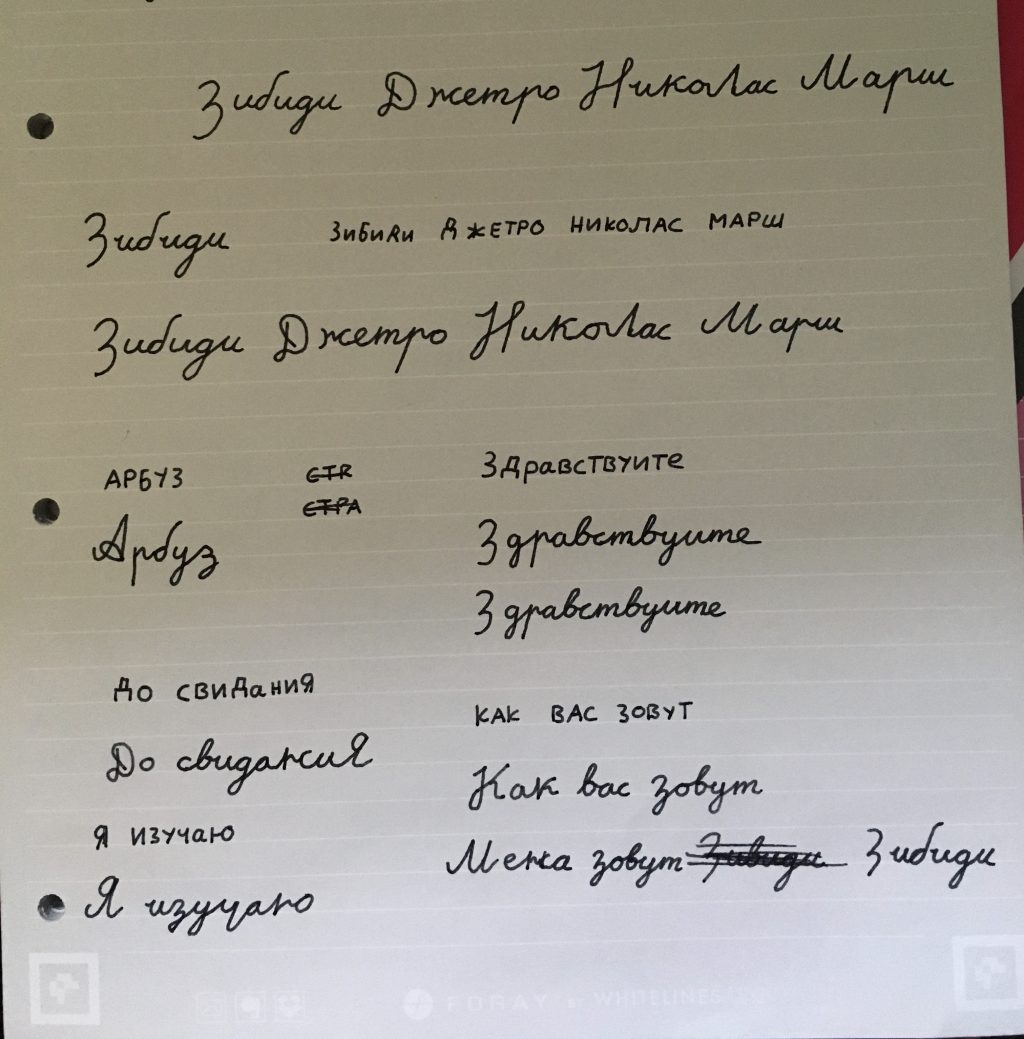 Зибиди Джетро Николас Марш
Зибиди ЗИБИДИ ДЖЕТРО НИКОЛАС МАРШ
Зибиди Джетро Николас Марш
АРБУЗ СТЯ Здравствуите
СТРА
Арбуз Здравствуите
Здравствуите
До свидания
КАК ВАС ЗОВУТ
До свидания
Как вас зовут
Я ИЗУЧАЮ
Мена зовут Зивиди Зибиди
Я изучаю
FORAY BY WHITELINES